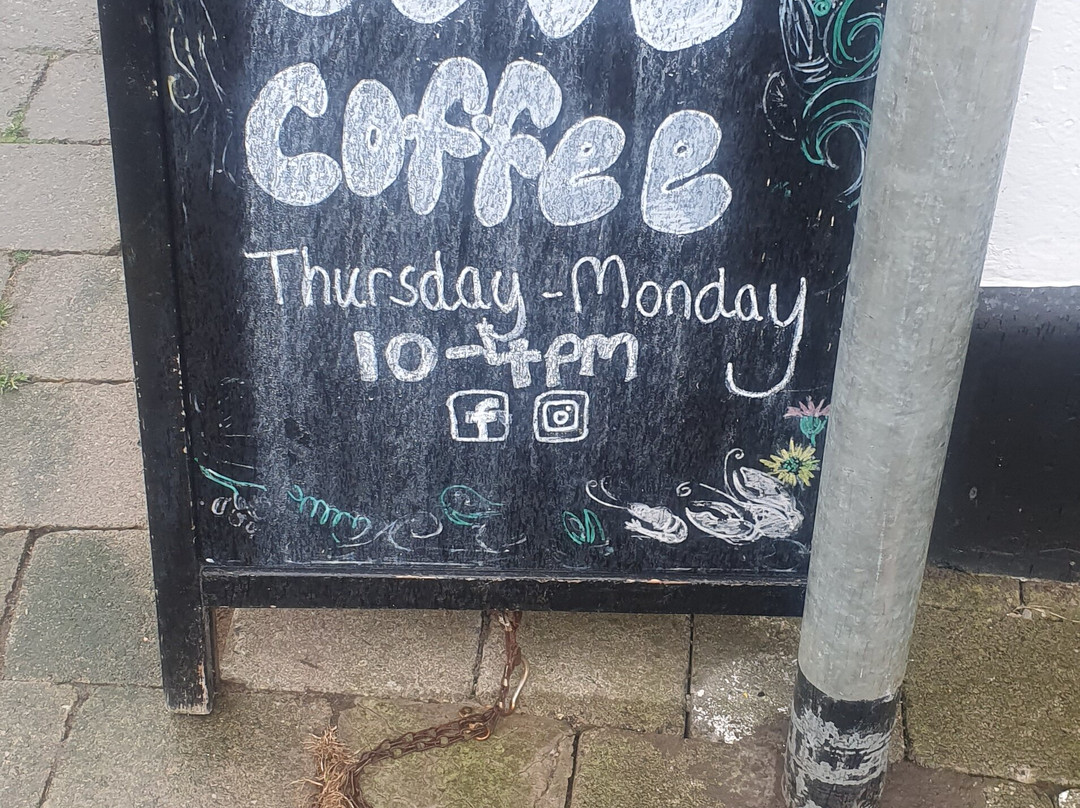 Coffee
Thursday - Monday
10-4pm